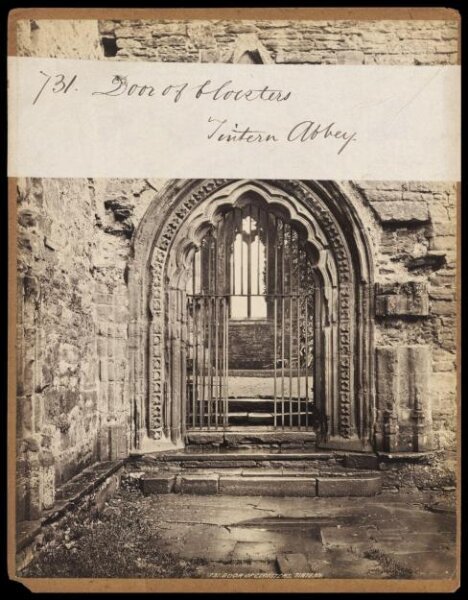 731. Door of Cloisters
Tintern Abbey
731. DOOR OF CLOISTERS. TINTERN